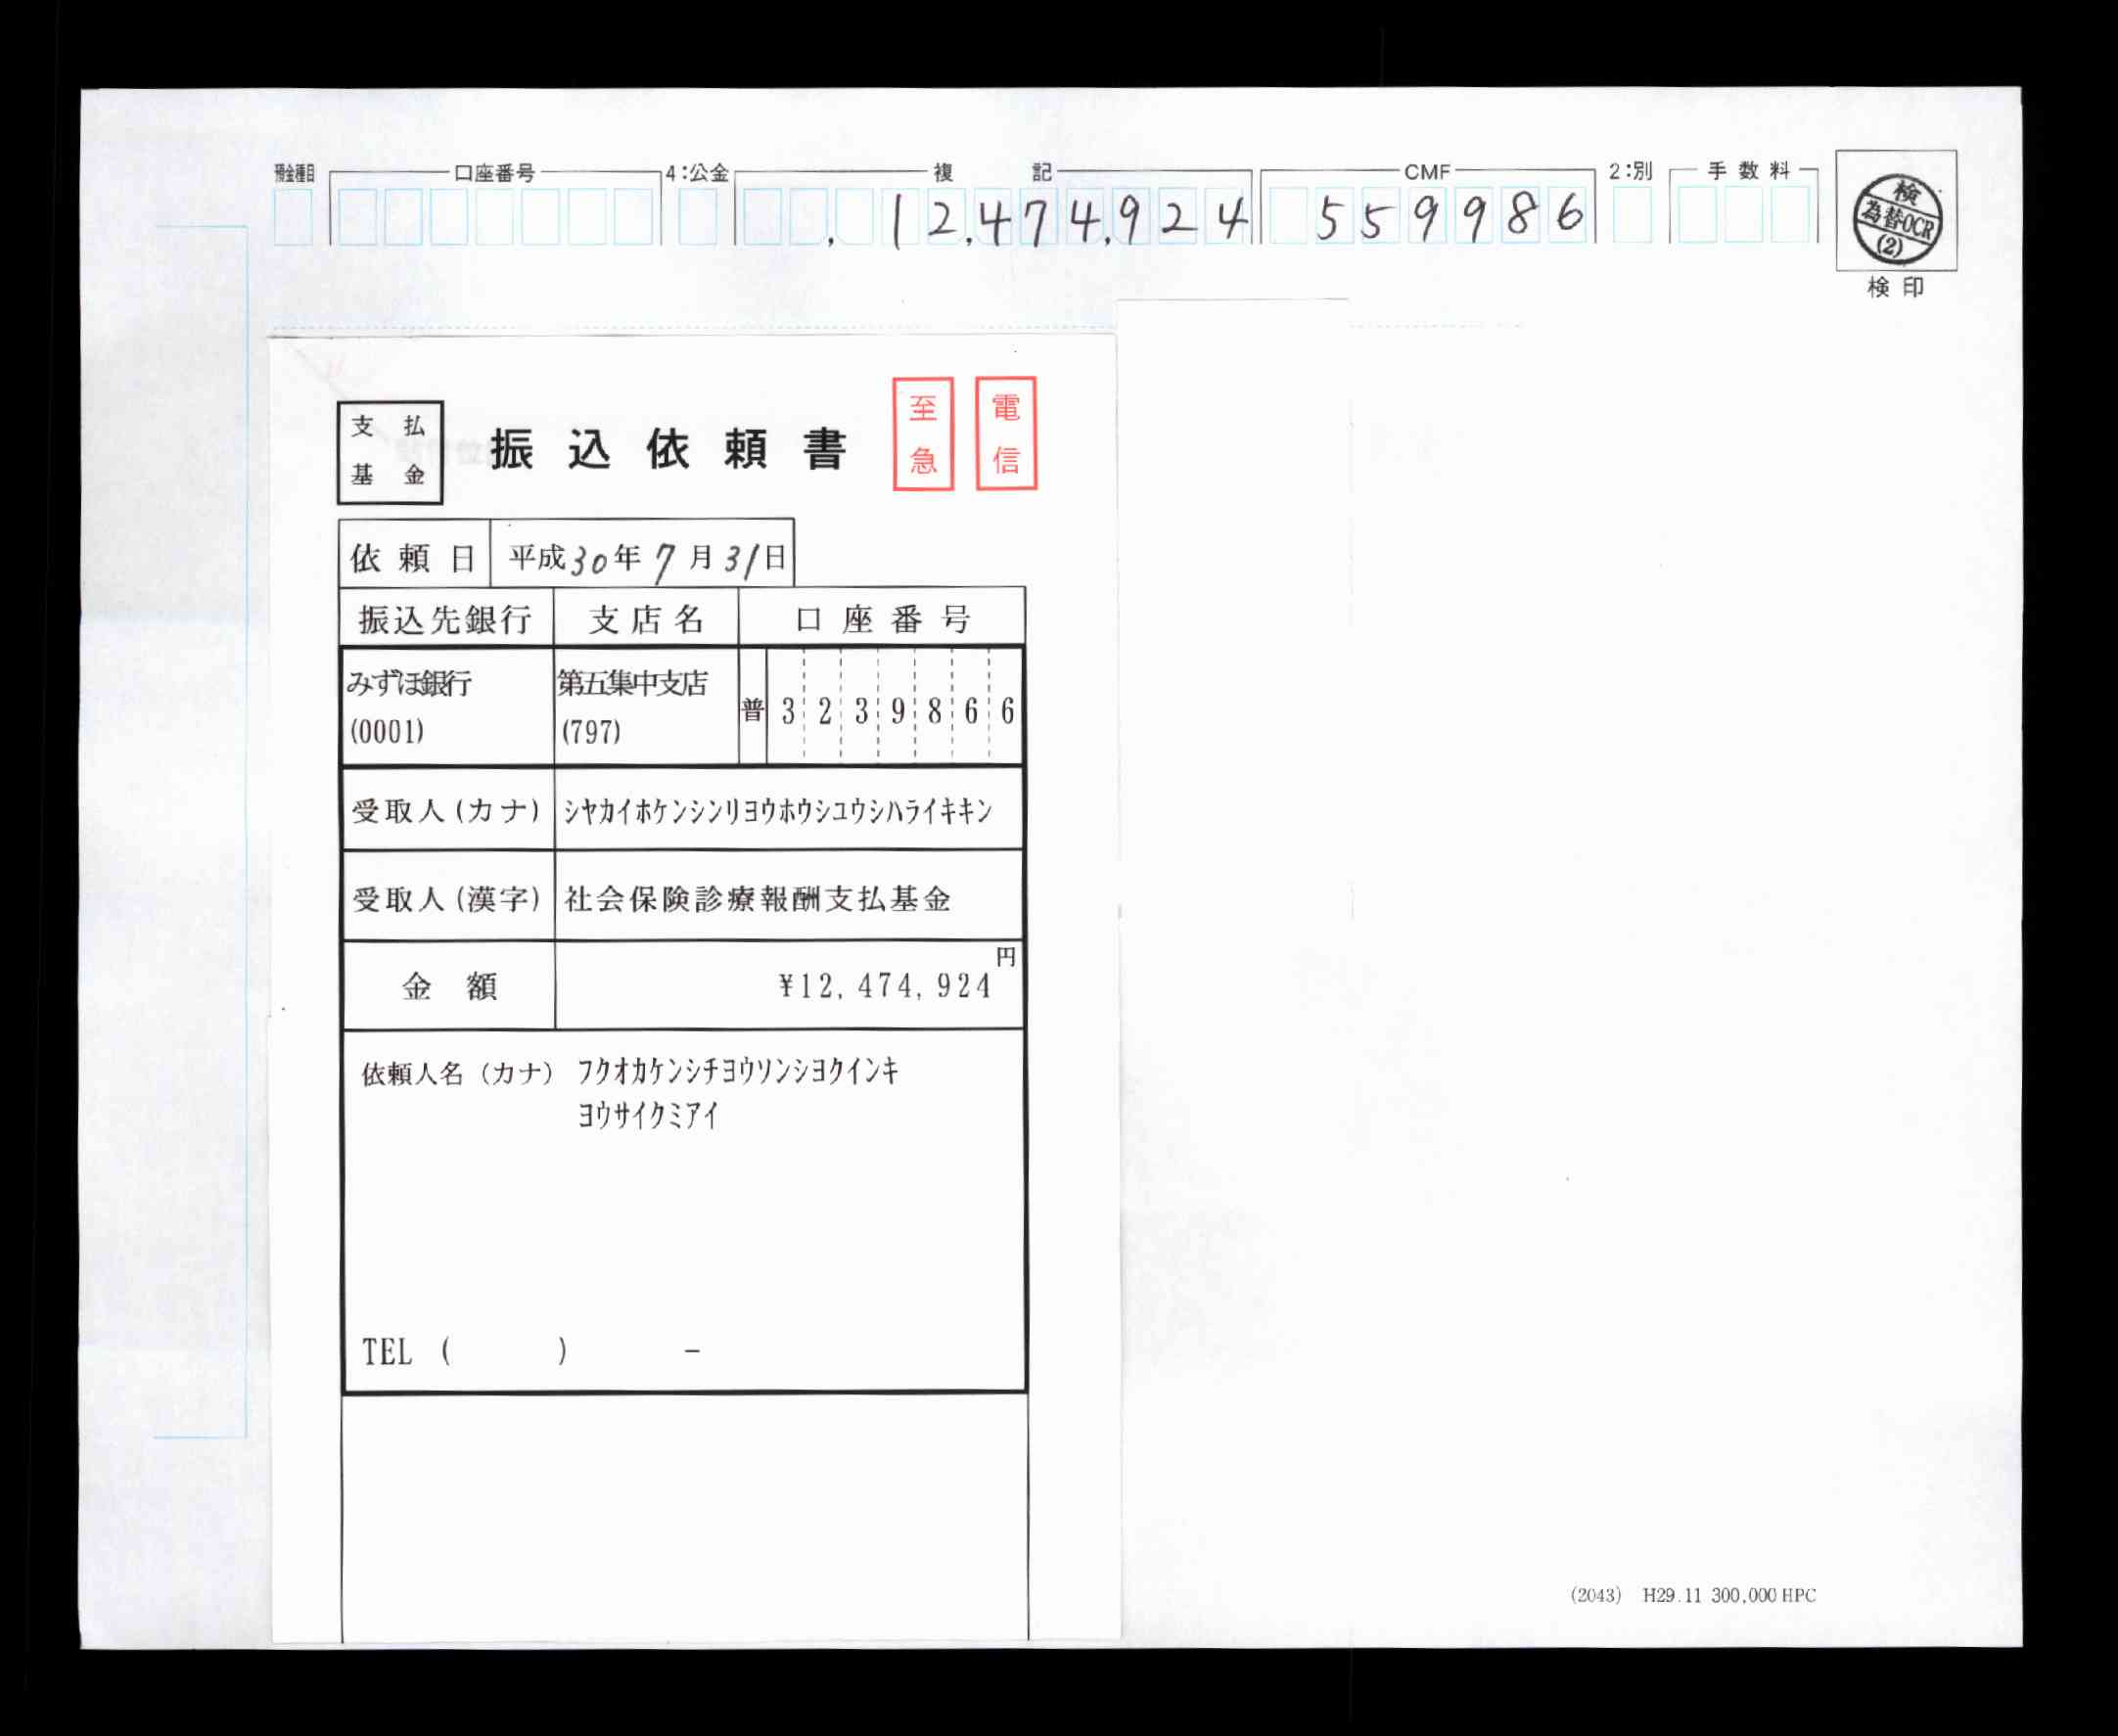 預金種目 口座番号 4:公金 複記 CMF 2:別 手数料
12,474,924 559986
検
為替OCR
(2)
検印
支払
基金
振込依頼書
至急
電信
依頼日 平成30年7月31日
振込先銀行 支店名 口座番号
みずほ銀行 第五集中支店
(0001) (797) 普 3239866
受取人(カナ) シヤカイホケンシンリヨウホウシユウシハライキキン
受取人(漢字) 社会保険診療報酬支払基金
円
金額 ¥12,474,924
依頼人名(カナ) フクオカケンシチヨウソンシヨクインキ
ヨウサイクミアイ
TEL ( ) −
(2043) H29.11 300,000 HPC